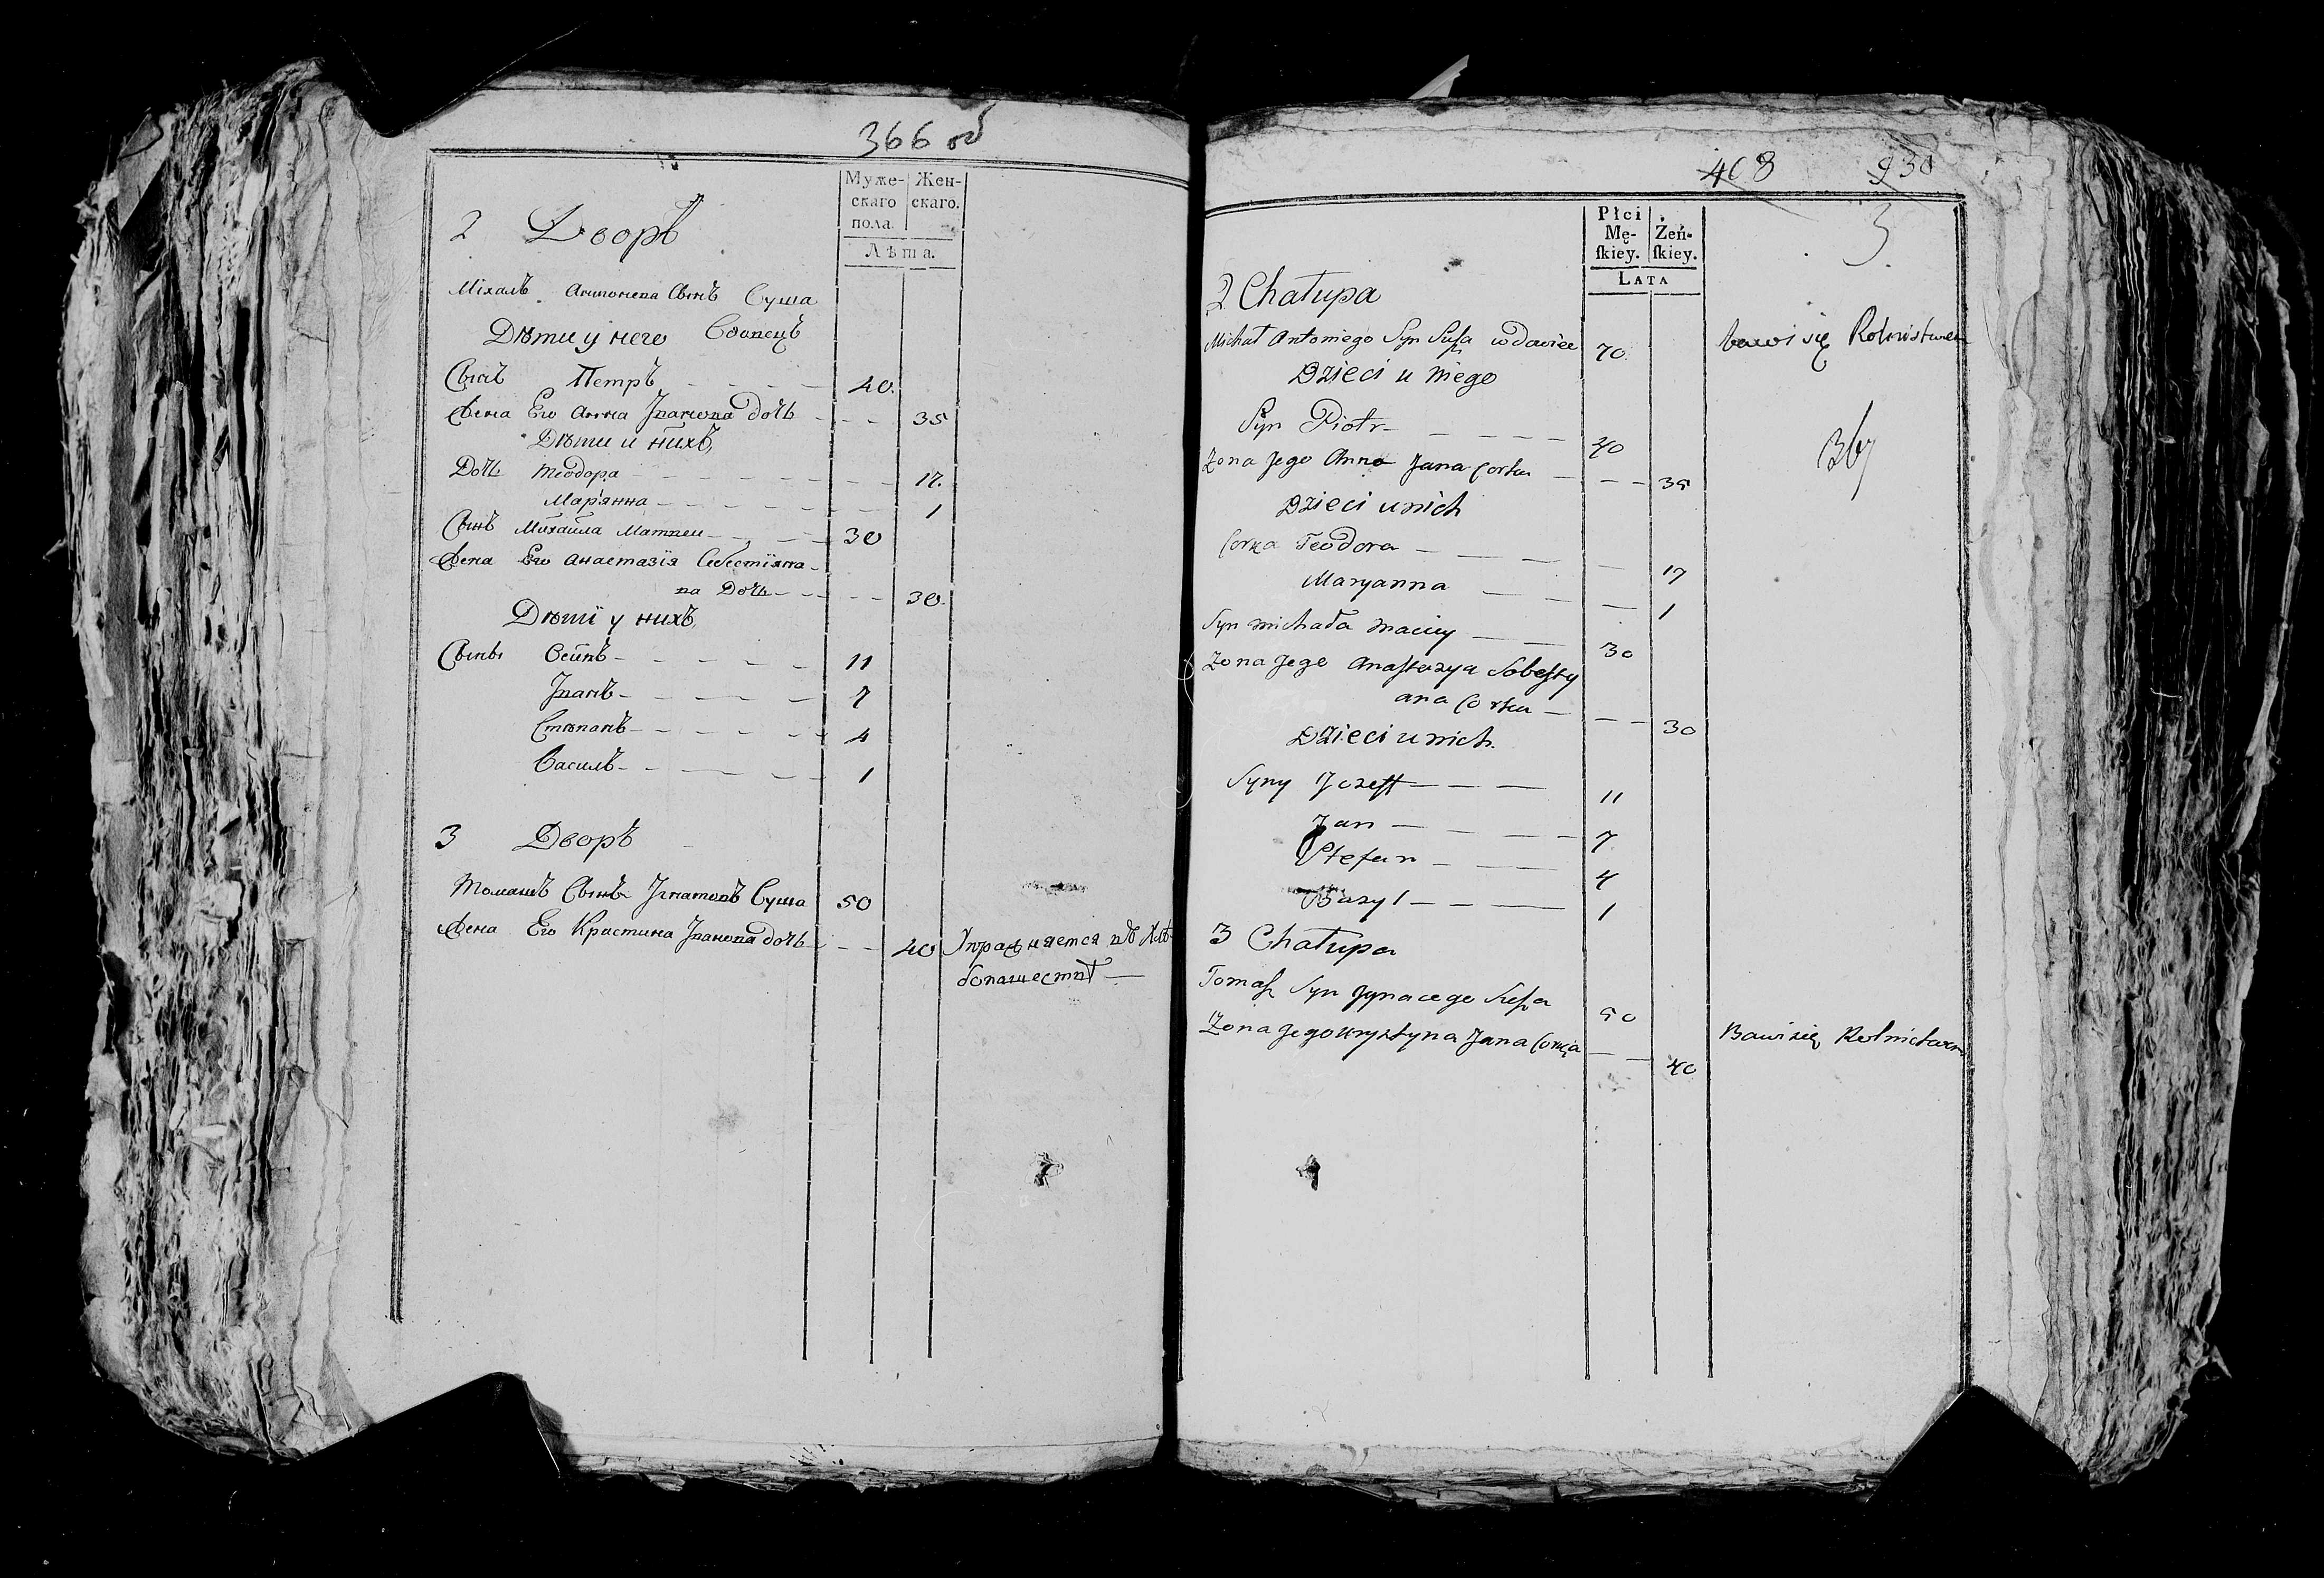 366 об
Муже- Жен-
скаго скаго.
пола.
Лѣта.
2 Дворъ
Міхалъ Антонова Сынъ Суша
Дѣти у него Вдовецъ
Сынъ Петръ 40.
Жена Его Анна Іванова дочь 35
Дѣти и нихъ
Дочь Теодора 17.
Марянна 1
Сынъ Михайла Матвеи 30
Жена Его Анастазія Себестіяно-
ва Дочь 30.
Дѣтї у нихъ
Сыны Осипъ 11
Іванъ 7
Стѣпанъ 4
Василь 1
3 Дворъ
Томашъ Сынъ Ігнатовъ Суша 50
Жена Его Кристина Іванова дочь 40 Упражняется въ Хлѣ-
бопашествѣ
408 930
3
Płci
Mę- Żeń-
ſkiey. ſkiey.
LATA
2 Chałupa
Michał Antoniego Syn Susza wdowiec 70. bawi się Rolnistwem
Dzieci u niego
Syn Piotr 40
367
Zona Jego Anna Jana Corka 35
Dzieci u nich
Corka Teodora 17
Maryanna 1
Syn Michała Maciey 30
Zona Jego Anaſtazya Sobeſty
ana Corka 30
Dzieci u nich.
Syny Jozeff 11
Jan 7.
Stefan 4
Bazyl 1
3 Chałupa
Tomaſz Syn Jgnacego Susza 50
Zona Jego Krysztyna Jana Corka 40 Bawi się Rolnictwem